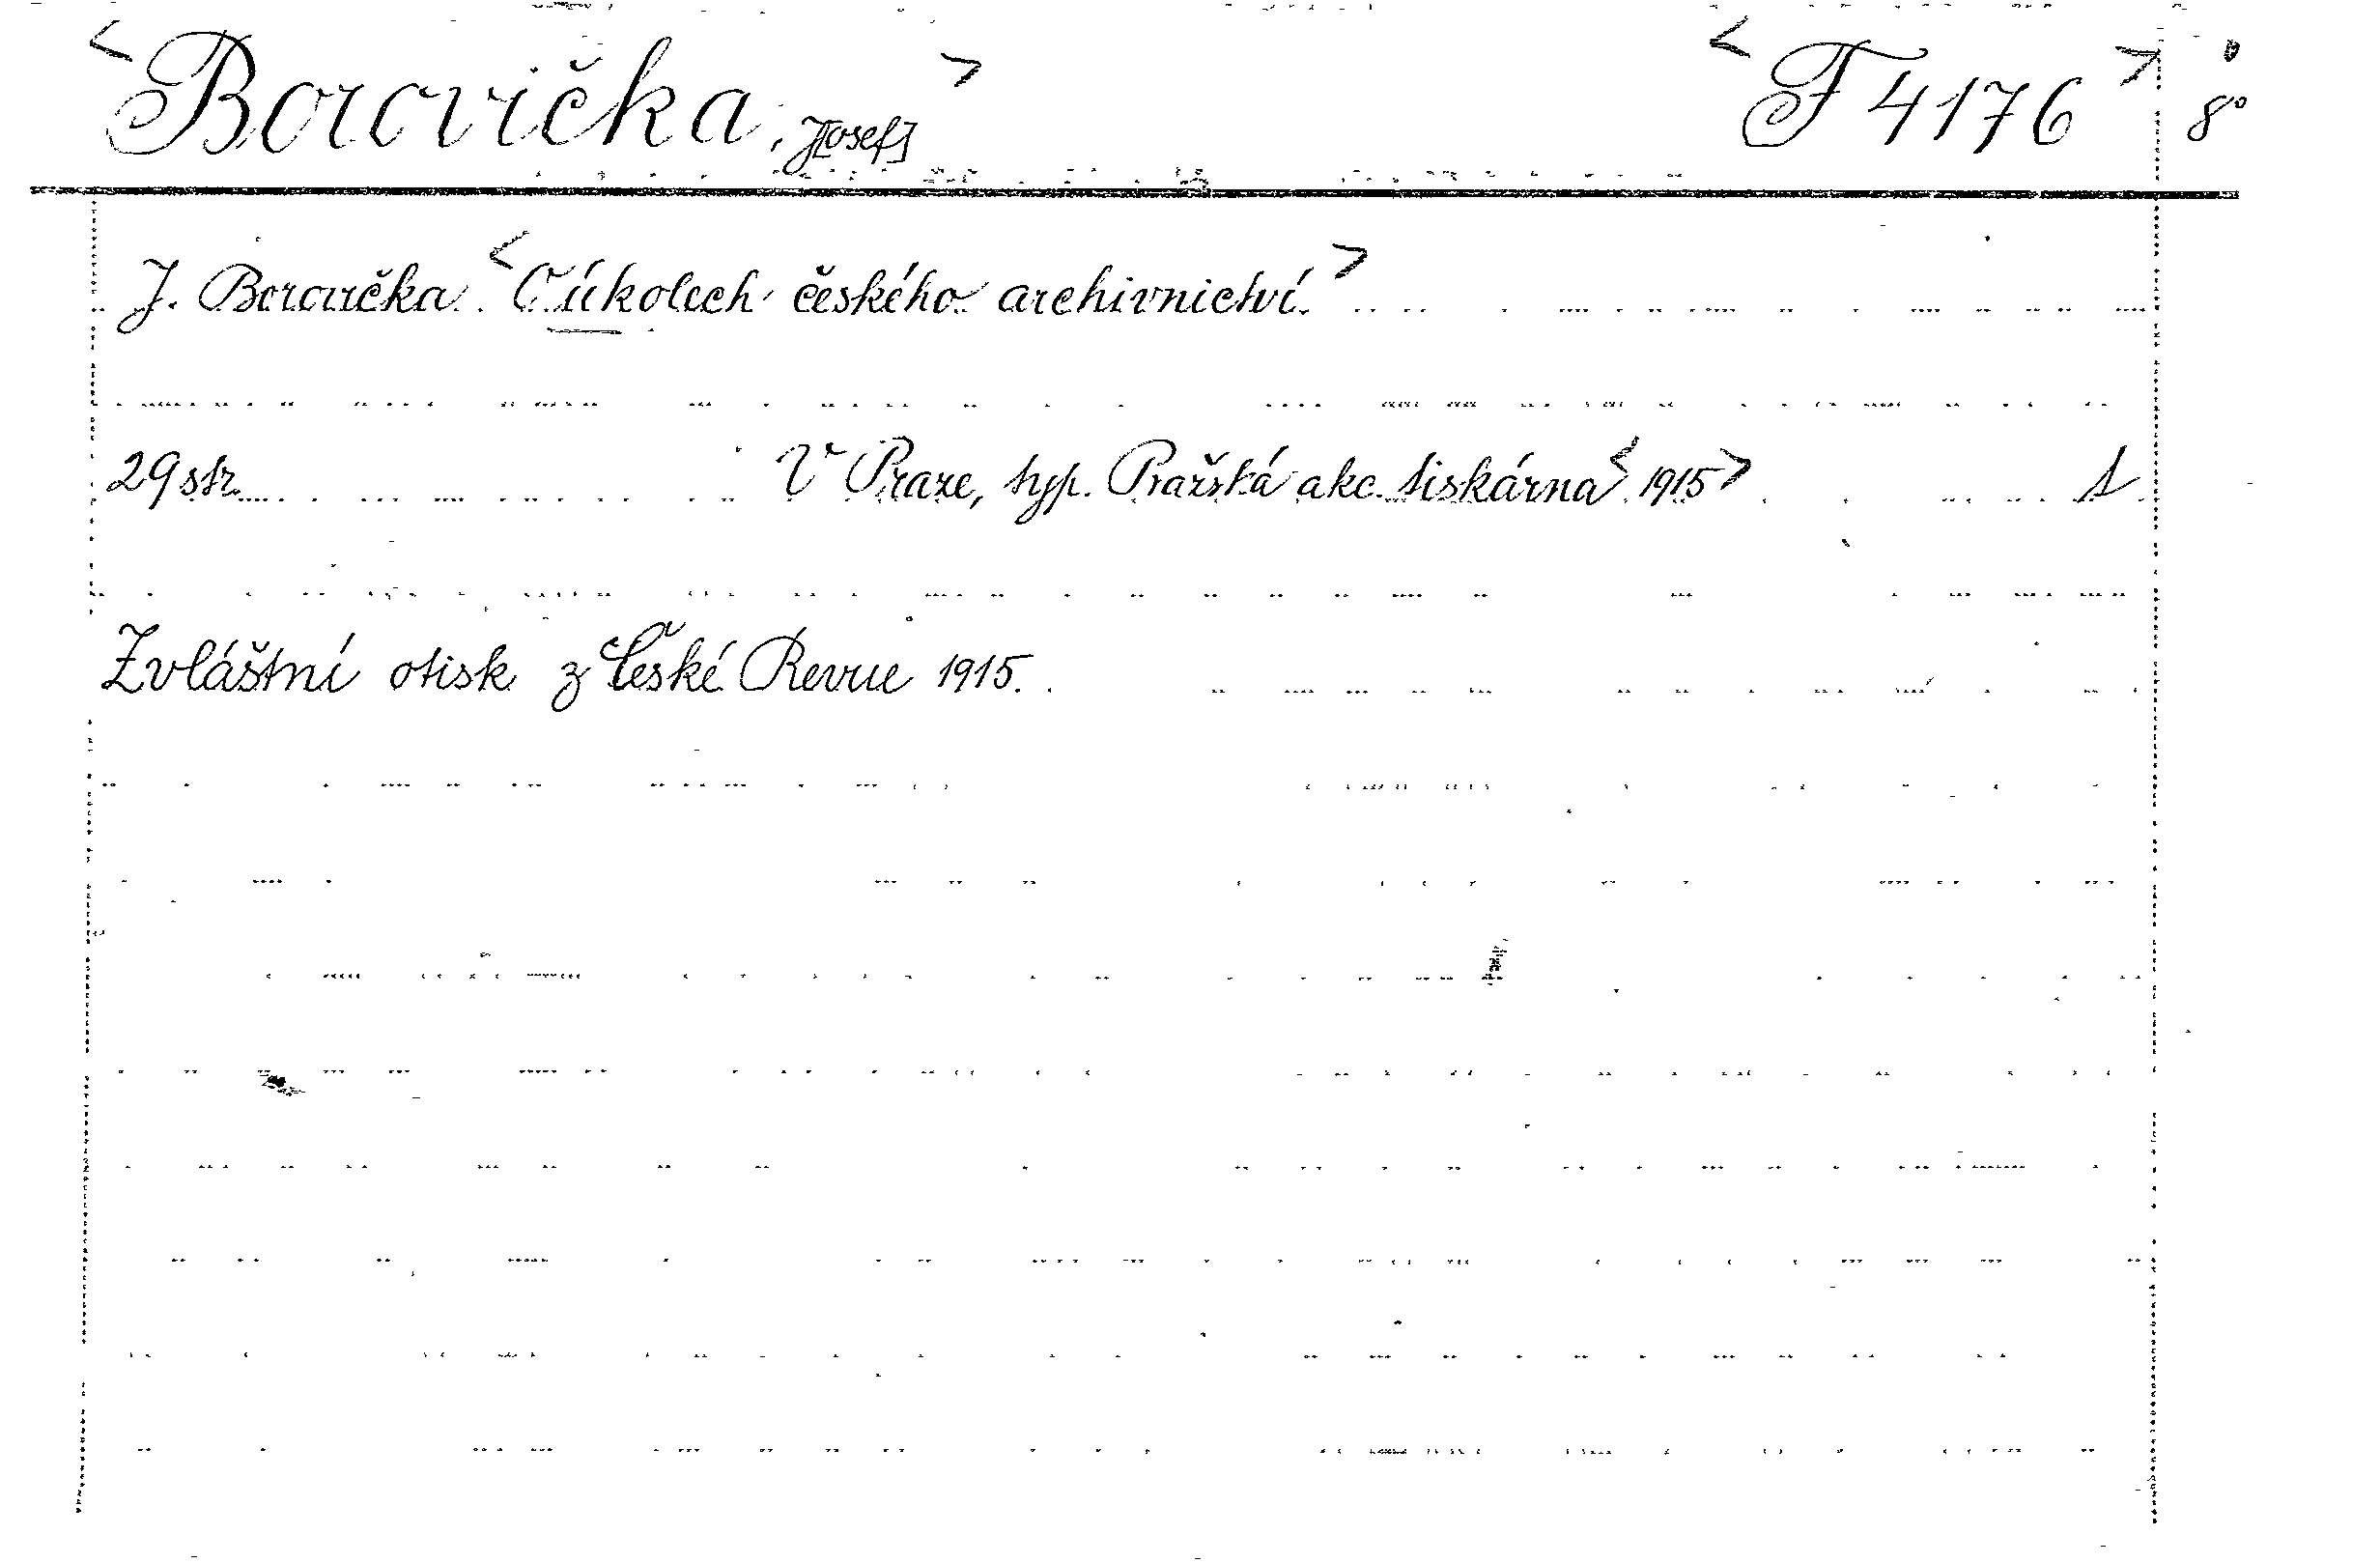 <Borovička, J[osef]> <F 4176> 8°
J. Borovička. <O úkolech českého archivnictví.>
29 str. V Praze, typ. Pražská akc. tiskárna <1915>
Zvláštní otisk z České Revue 1915.